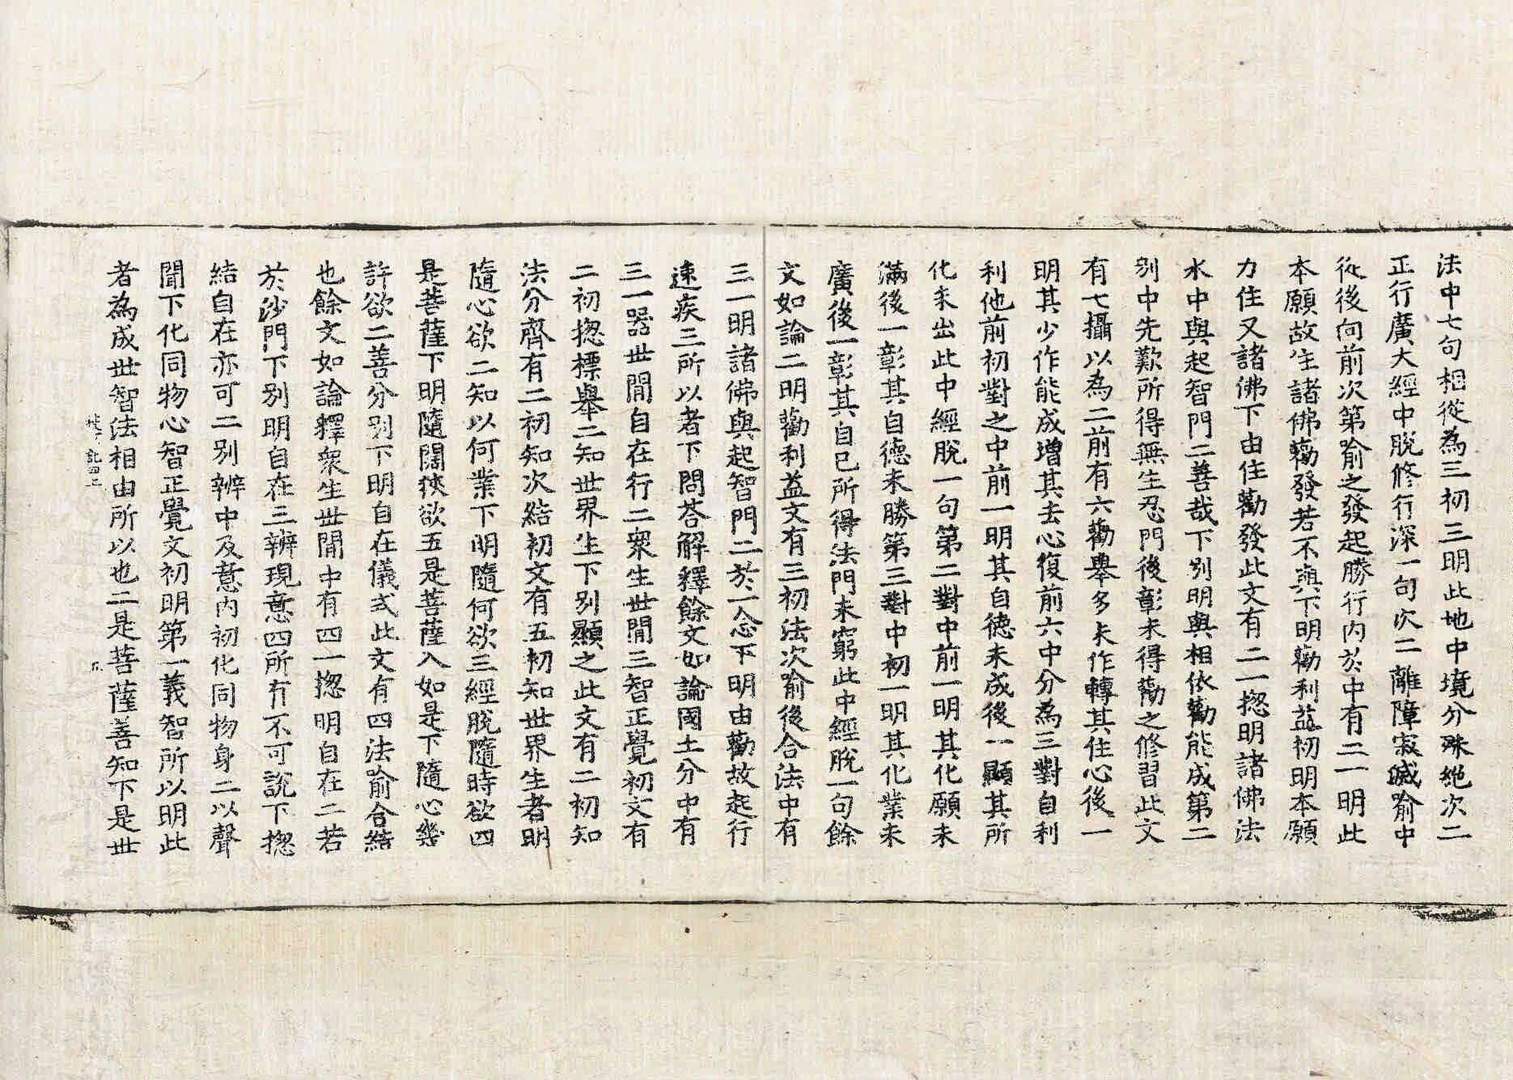 法中七句相從為三初三明此地中境分殊絶次二
正行廣大經中脫修行深一句次二離障寂滅喻中
從後向前次第喻之發起勝行內於中有二一明此
本願故生諸佛勸發若不與下明勸利益初明本願
力住又諸佛下由住勸發此文有二一揔明諸佛法
水中與起智門二善哉下別明與相依勸能成第二
別中先歎所得無生忍門後彰未得勸之修習此文
有七攝以為二前有六勸舉多未作轉其住心後一
明其少作能成增其去心復前六中分為三對自利
利他前初對之中前一明其自德未成後一顯其所
化未出此中經脫一句第二對中前一明其化願未
滿後一彰其自德未勝第三對中初一明其化業未
廣後一彰其自已所得法門未窮此中經脫一句餘
文如論二明勸利益文有三初法次喻後合法中有
三一明諸佛與起智門二於一念下明由勸故起行
速疾三所以者下問荅解釋餘文如論國土分中有
三一器世間自在行二眾生世間三智正覺初文有
二初揔標舉二知世界生下別顯之此文有二初知
法分齊有二初知次結初文有五初知世界生者明
隨心欲二知以何業下明隨何欲三經脫隨時欲四
是菩薩下明隨闊狹欲五是菩薩入如是下隨心幾
許欲二善分別下明自在儀式此文有四法喻合結
也餘文如論釋眾生世間中有四一揔明自在二若
於沙門下別明自在三辨現意四所有不可說下揔
結自在亦可二別辨中及意內初化同物身二以聲
聞下化同物心智正覺文初明第一義智所以明此
者為成世智法相由所以也二是菩薩善知下是世